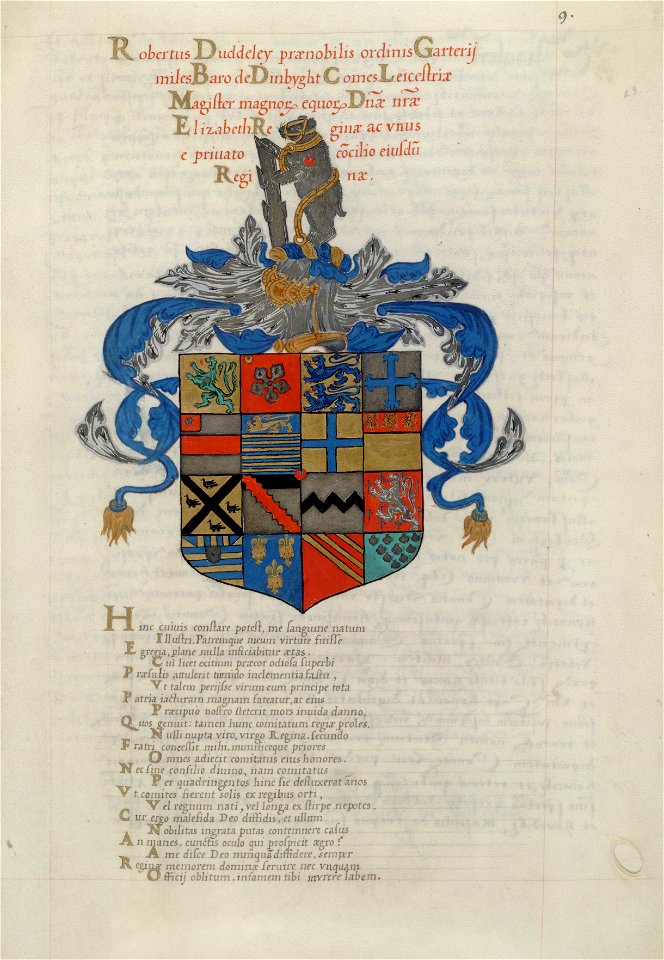 9.
Robertus Duddeley prænobilis ordinis Garterij
miles Baro de Dinbyght Comes Leicestriæ
Magister magnoꝝ equoꝝ Dñæ nr̃æ
Elizabeth Re ginæ ac vnus
e priuato cõcilio eiusdũ
Regi næ.
23
Hinc cuiuis constare potest, me sanguine natum
Illustri, Patremque meum virtute fuisse
Egregia, plane nulla inficiabitur ætas.
Cui licet exitium præcox odiosa superbi
Præsulis attulerit tumido inclementia fastu,
Vt talem perijsse virum cum principe tota
Patria iacturam magnam fateatur, at eius
Præcipuo nostro steterit mors inuida danno,
Quos genuit: tamen hunc comitatum regiæ proles,
Nulli nupta viro, virgo Regina, secundo
Fratri concessit mihi, munificeque priores
Omnes adiecit comitatus eius honores.
Nec sine consilio diuino, nam comitatus
Per quadringentos hinc sic defluxerat anos
Vt comites fierent solis ex regibus orti,
Vel regnum nati, vel longa ex stirpe nepotes.
Cur ergo malefida Deo diffidis, et ullum
Nobilitas ingrata putas contemnere casus
An manes, cunctis oculo qui prospicit ægro?
A me disce Deo nunquã diffidere, semper
Reginæ memorem dominæ seruire nec vnquam
Officij oblitum, infamem tibi inurere labem.